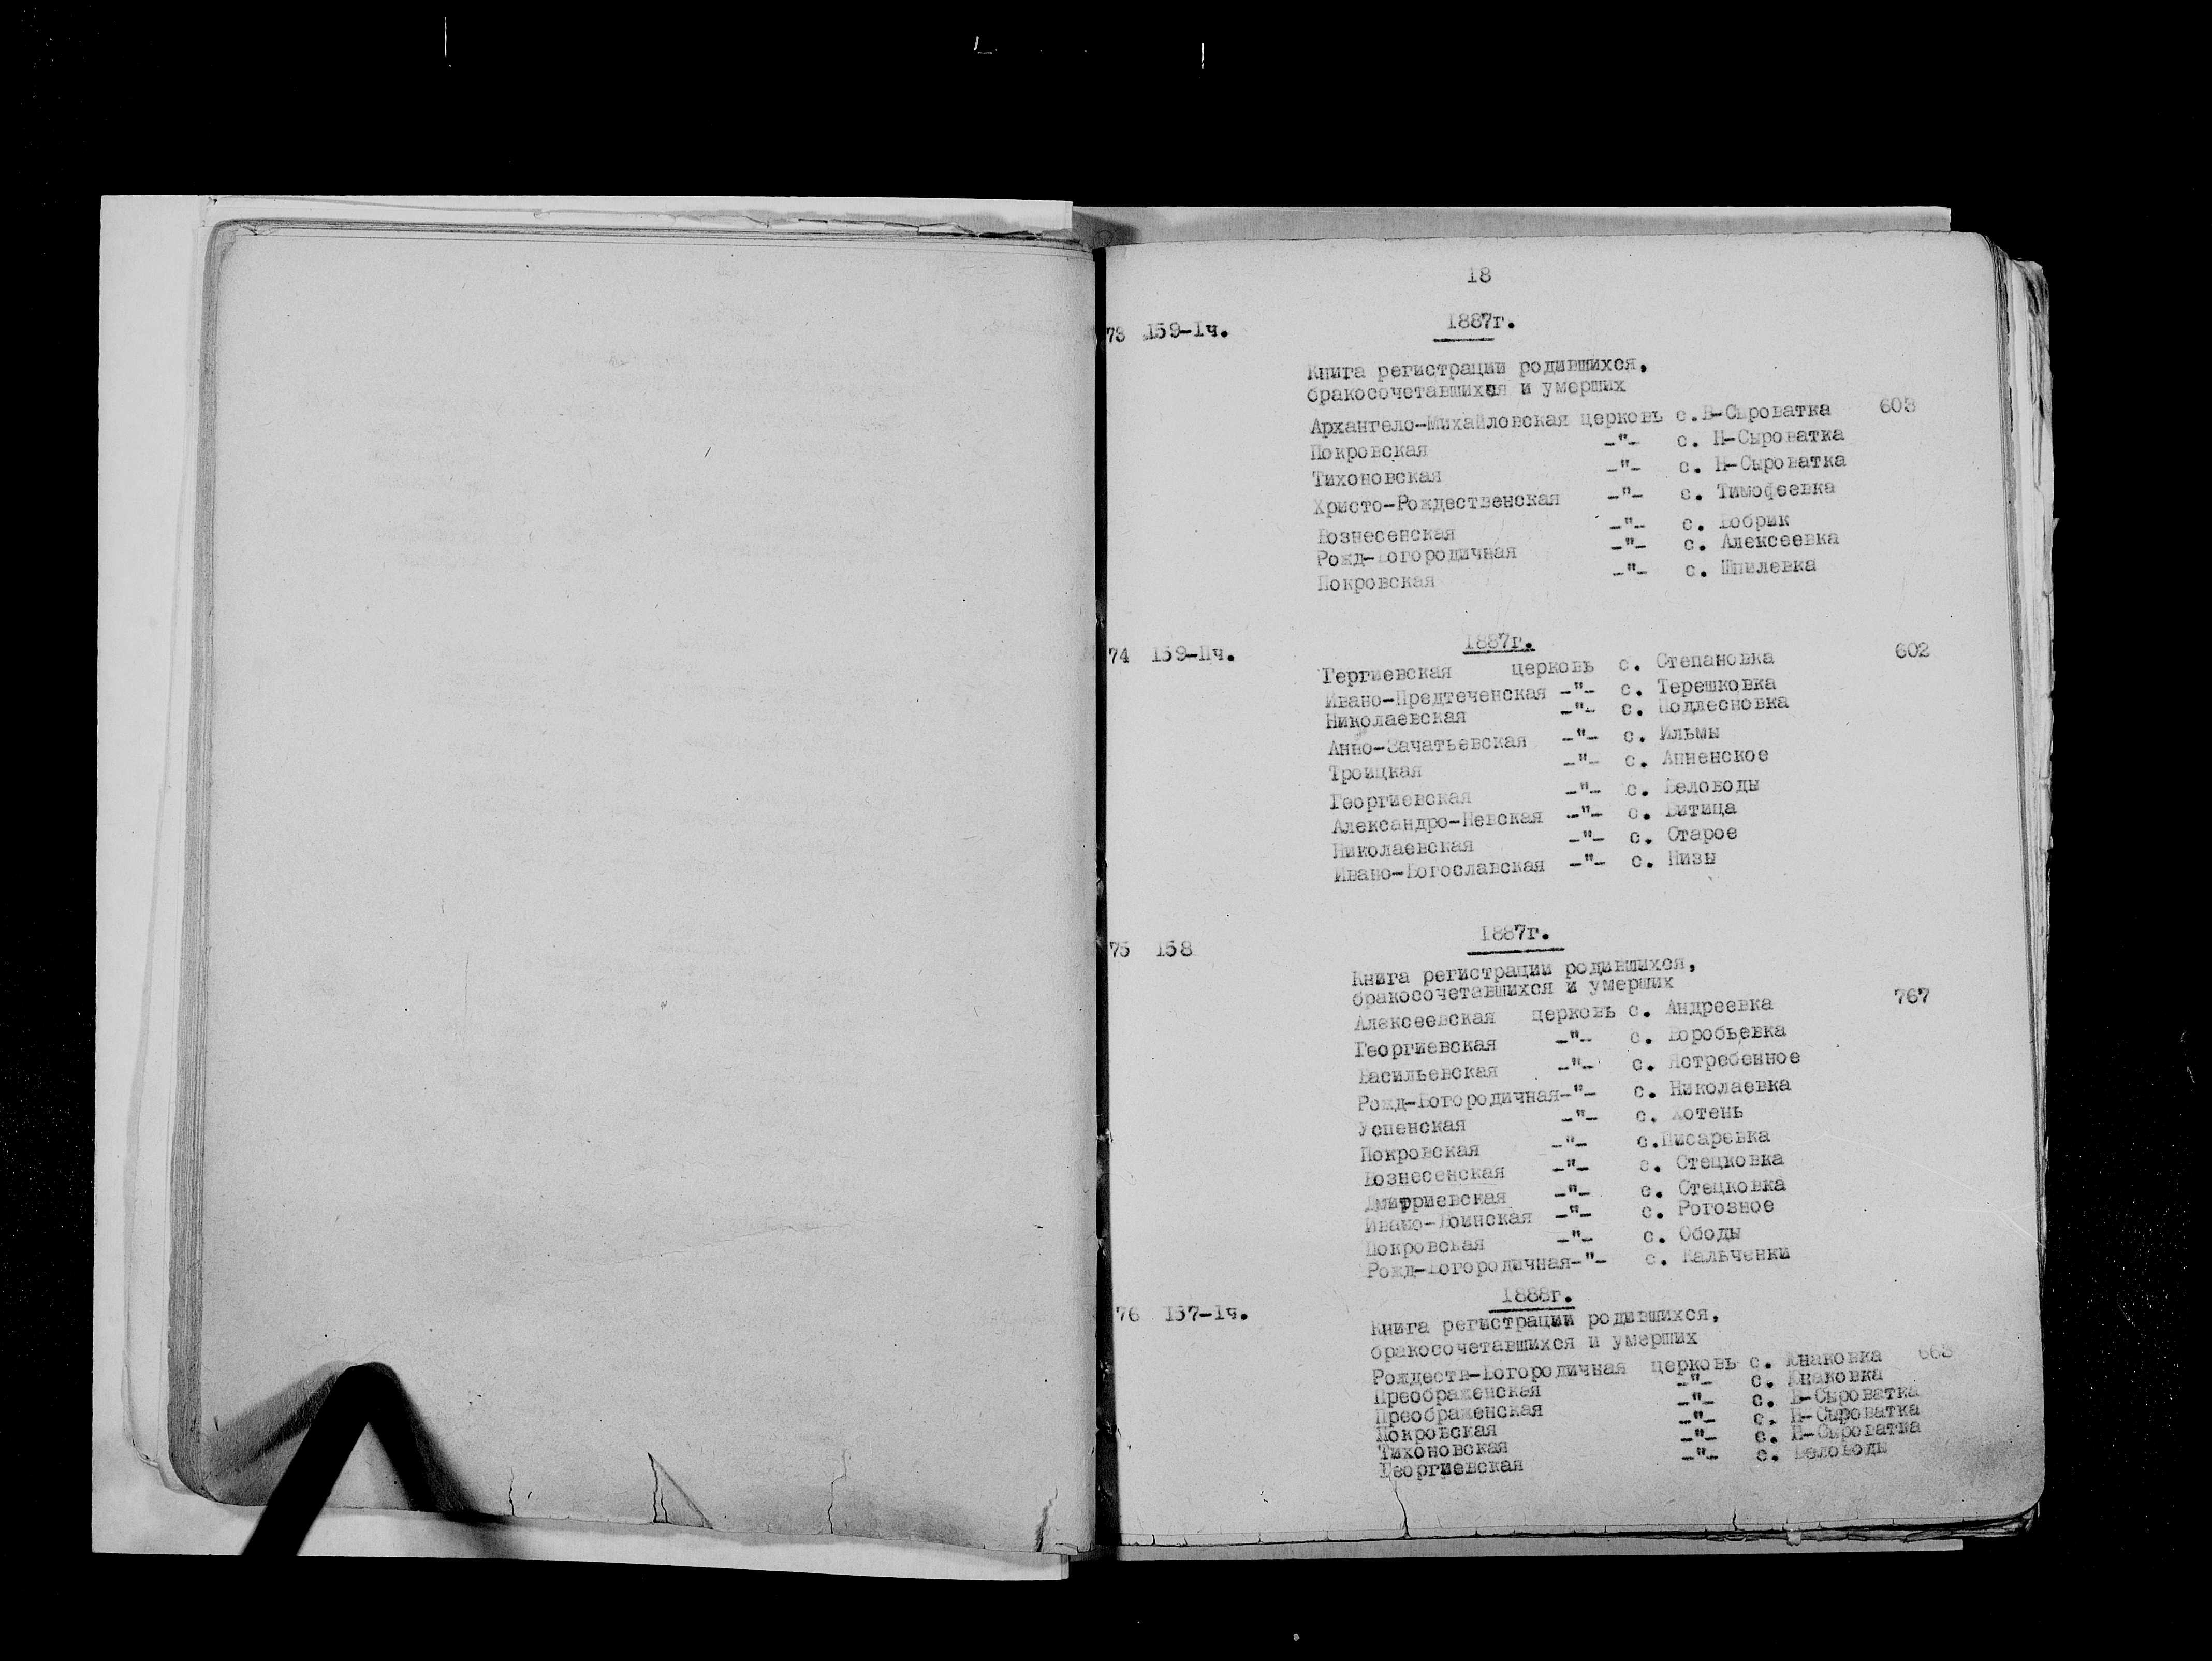 18
73 159-Iч. 1887г.
Книга регистрации родившихся,
бракосочетавшихся и умерших
Архангело-Михайловская церковь с.В-Сыроватка 603
Покровская -"- с. Н-Сыроватка
Тихоновская -"- с. Н-Сыроватка
Христо-Рождественская -"- с. Тимофеевка
Вознесенская -"- с. Бобрик
Рожд-Богородичная -"- с. Алексеевка
Покровская -"- с. Шпилевка
74 159-IIч. 1887г.
Гергиевская церковь с. Степановка 602
Ивано-Предтеченская -"- с. Терешковка
Николаевская -"- с. Подлесновка
Анно-Зачатьевская -"- с. Ильмы
Троицкая -"- с. Анненское
Георгиевская -"- с. Беловоды
Александро-Невская -"- с. Битица
Николаевская -"- с. Старое
Ивано-Богославская -"- с. Низы
75 158 1887г.
Книга регистрации родившихся,
бракосочетавшихся и умерших
Алексеевская церковь с. Андреевка 767
Георгиевская -"- с. Воробьевка
Васильевская -"- с. Ястребенное
Рожд-Богородичная-"- с. Николаевка
Успенская -"- с. Хотень
Покровская -"- с.Писаревка
Вознесенская -"- с. Стецковка
Дмитриевская -"- с. Стецковка
Ивано-Воинская -"- с. Рогозное
Покровская -"- с. Ободы
Рожд-Богородичная-"- с. Кальченки
76 157-Iч. 1888г.
Книга регистрации родившихся,
бракосочетавшихся и умерших
Рождеств-Богородичная церковь с. Юнаковка 663
Преображенская -"- с. Юнаковка
Преображенская -"- с. В-Сыроватка
Покровская -"- с. Н-Сыроватка
Тихоновская -"- с. Н-Сыроватка
Георгиевская -"- с. Беловоды